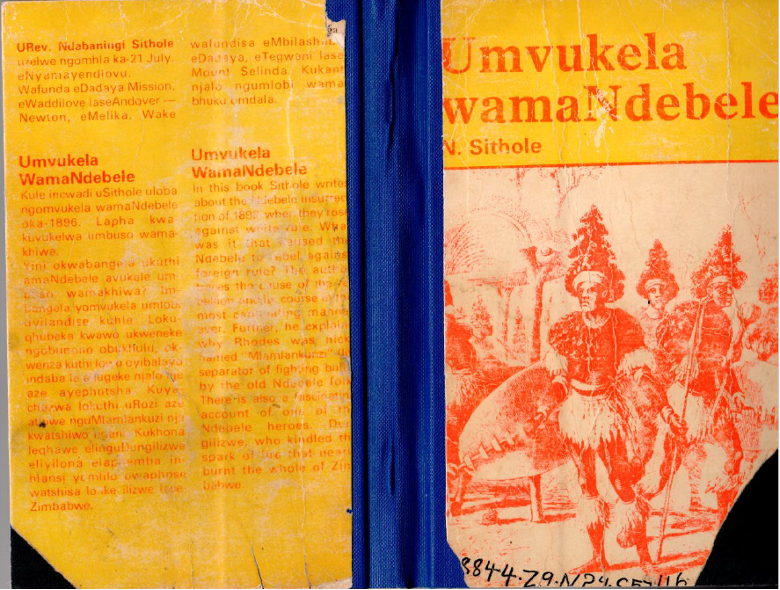 URev. Ndabaningi Sithole
uzelwe ngomhla ka-21 July
eNyamayendlovu.
Wafunda eDadaya Mission,
eWaddilove laseAndover —
Newton, eMelika. Wake
wafundisa
eDadaya, eTegwani lase
Mount Selinda
njalo ngumlobi wama
bhuku omdala.
Umvukela
WamaNdebele
Kule incwadi uSithole uloba
ngomvukela wamaNdebele
oka-1896. Lapha kwa
kuvukelwa umbuso wama-
khiwa.
Yini okwabangela ukuthi
amaNdebele avukele um-
buso wamakhiwa? Im-
bangela yomvukela umlobi
uyilandise kuhle. Loku-
qhubeka kwawo ukweneke
ngobunono obukhulu, ok-
wenza kuthi lowo oyibalayo
indaba le
aze ayephutsha. Kuye
chazwa lokuthi uRozi aze
njalo. Kukhona
leqhawe elinguDungilizwe
eliyilona
hlansi yomlilo owaphose
watshisa lonke ilizwe
Zimbabwe.
Umvukela
WamaNdebele
In this book Sithole write
about the Ndebele insurrec-
tion of 1896 when they rose
against white rule. What
was it that caused the
Ndebele to rebel against
foreign rule? The author
traces the cause of the
and its course in
most captivating mann
ever. Further, he explain
why Rhodes was nick
named Mlamlankunzi
separator of fighting bull
by the old Ndebele folk
There is also a fascinating
account of one of the
Ndebele heroes,
gilizwe, who kindled the
spark of fire that near
burnt the whole of Zim
babwe.
Umvukela
wamaNdebele
N. Sithole